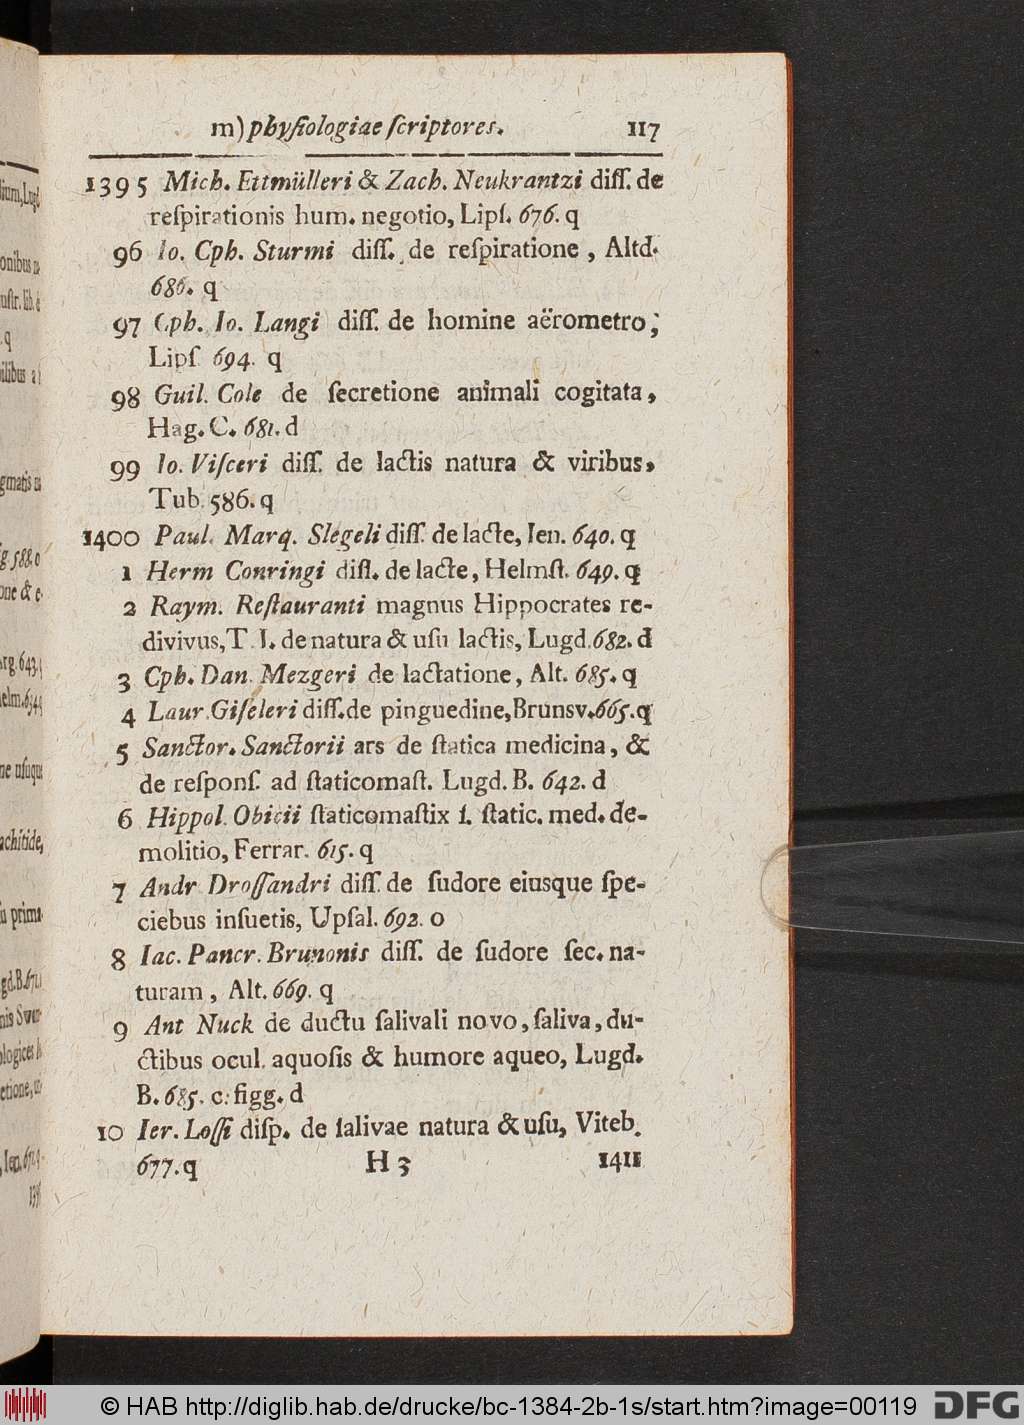 m) phyſiologiae ſcriptores. 117
1395 Mich. Ettmülleri & Zach. Neukrantzi diſſ. de
reſpirationis hum. negotio, Lipſ. 676. q
96 Io. Cph. Sturmi diſſ. de reſpiratione, Altd.
686. q
97 Cph. Io. Langi diſſ. de homine aërometro,
Lipſ 694. q
98 Guil. Cole de ſecretione animali cogitata,
Hag. C. 681. d
99 Io. Viſceri diſſ. de lactis natura & viribus,
Tub. 586. q
1400 Paul. Marq. Slegeli diſſ. de lacte, Ien. 640. q
1 Herm Conringi diſſ. de lacte, Helmſt. 649. q
2 Raym. Reſtauranti magnus Hippocrates re-
divivus, T. I. de natura & uſu lactis, Lugd. 682. d
3 Cph. Dan. Mezgeri de lactatione, Alt. 685. q
4 Laur. Giſeleri diſſ. de pinguedine, Brunsv. 665. q
5 Sanctor. Sanctorii ars de ſtatica medicina, &
de reſponſ. ad ſtaticomaſt. Lugd. B. 642. d
6 Hippol. Obicii ſtaticomaſtix ſ. ſtatic. med. de-
molitio, Ferrar. 615. q
7 Andr Droſſandri diſſ. de ſudore eiusque ſpe-
ciebus inſuetis, Upſal. 692. o
8 Iac. Pancr. Brunonis diſſ. de ſudore ſec. na-
turam, Alt. 669. q
9 Ant Nuck de ductu ſalivali novo, ſaliva, du-
ctibus ocul. aquoſis & humore aqueo, Lugd.
B. 685. c. figg. d
10 Ier. Loſſi diſp. de ſalivae natura & uſu, Viteb.
677. q H 3 1411
© HAB http://diglib.hab.de/drucke/bc-1384-2b-1s/start.htm?image=00119 DFG